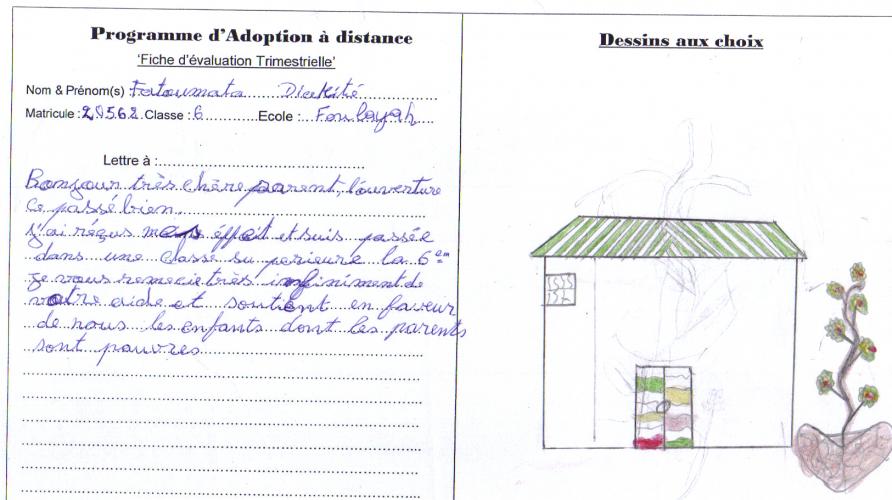 Programme d'Adoption à distance
'Fiche d'évaluation Trimestrielle'
Nom & Prénom(s) Fatoumata Diakité
Matricule : 20562. Classe : 6 Ecole : Foulayah
Lettre à :
Bonjour très chère parent, l'ouverture
ce passé bien.
j'ai réçus mes éffoit et suis passée
dans une classe superieure la 6em
je vous remecie très infiniment de
votre aide et soutient en faveur
de nous les enfants dont les parents
sont pauvres
Dessins aux choix